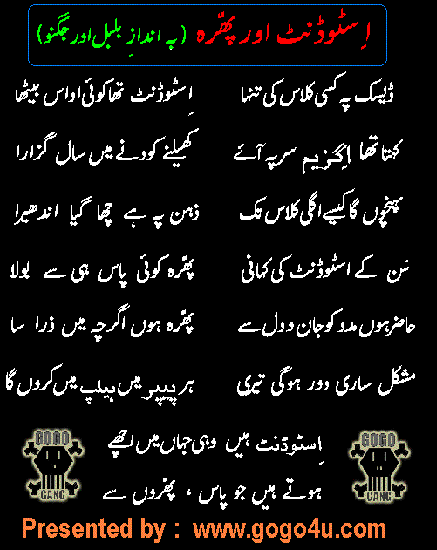 اِسٹوڈنٹ اور پھرّہ (بہ اندازِ بلبل اور جگنو)
ڈیسک پہ کسی کلاس کی تنہا اِسٹوڈنٹ تھا کوئی اداس بیٹھا
کہتا تھا اگزیم سر پہ آئے کھیلنے کودنے میں سال گزارا
پہنچوں گا کیسے اگلی کلاس تک ذہن پہ ہے چھا گیا اندھیرا
سُن کے اسٹوڈنٹ کی کہانی پھرّہ کوئی پاس ہی سے بولا
حاضر ہوں مدد کو جان و دل سے پھرّہ ہوں اگرچہ میں ذرا سا
مشکل ساری دور ہوگی تیری ہر پیپر میں ہیلپ میں کروں گا
اِسٹوڈنٹ ہیں وہی جہاں میں اچھے
ہوتے ہیں جو پاس ، پھرّوں سے
GOGO GANG GOGO GANG
Presented by : www.gogo4u.com